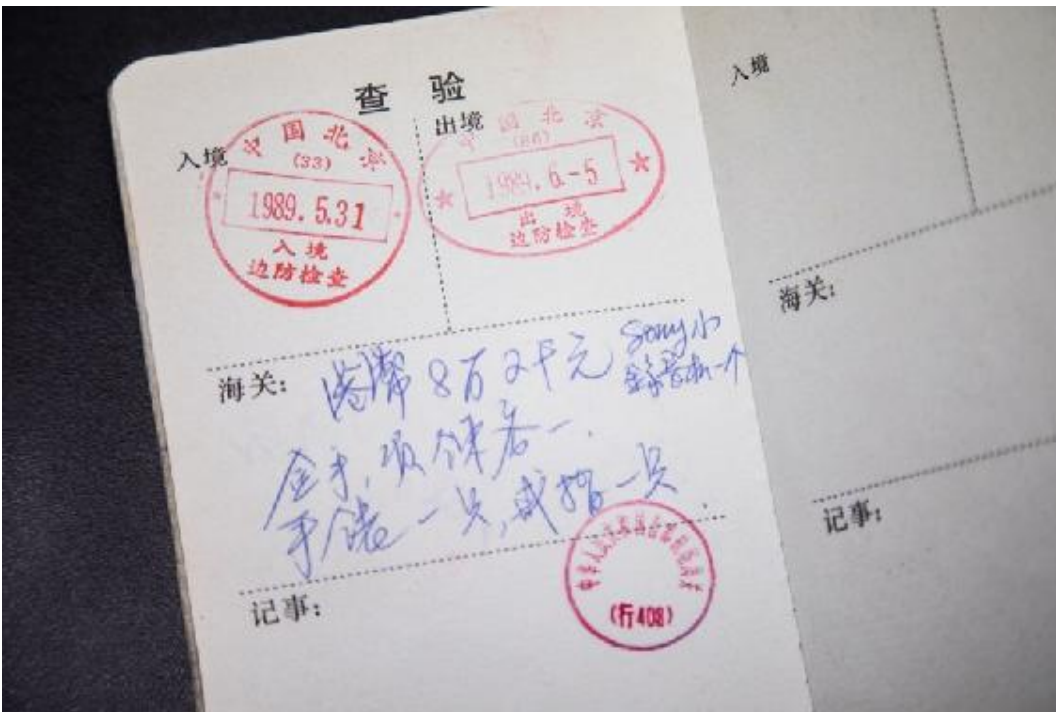 查 验
入境
出境
中国北京
(33)
1989.5.31
入境
边防检查
中国北京
(86)
1989.6.-5
出境
边防检查
海关:
港币8万2千元
Sony小
录音机一个
金手,项
一.
手镯一只,戒指一只.
(行408)
记事:
入境
海关:
记事: